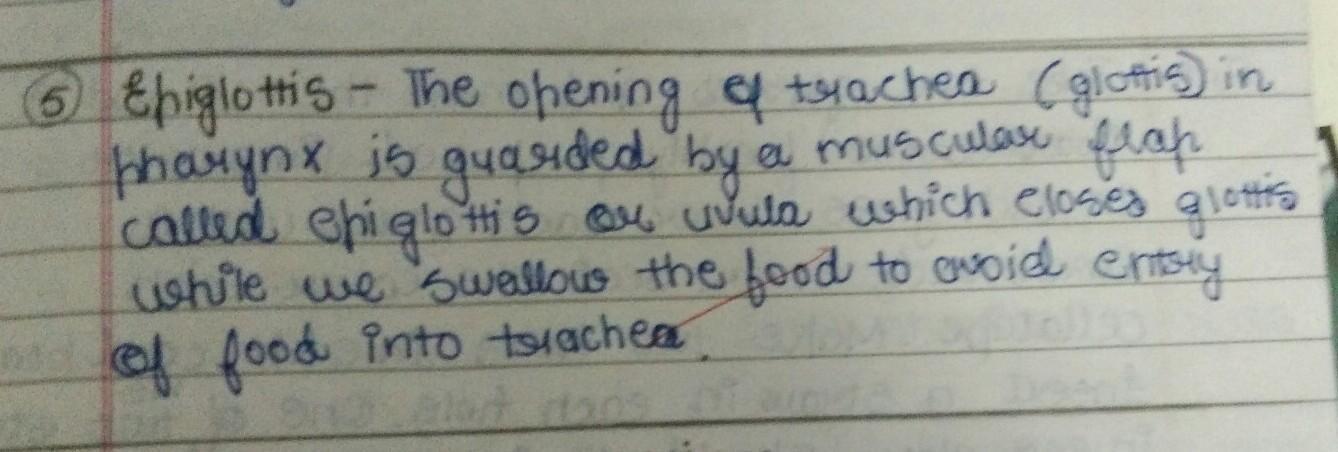 5 Epiglottis - The opening of trachea (glottis) in
pharynx is guarded by a muscular flap
called epiglottis or uvula which closes glottis
while we swallow the food to avoid entry
of food into trachea.